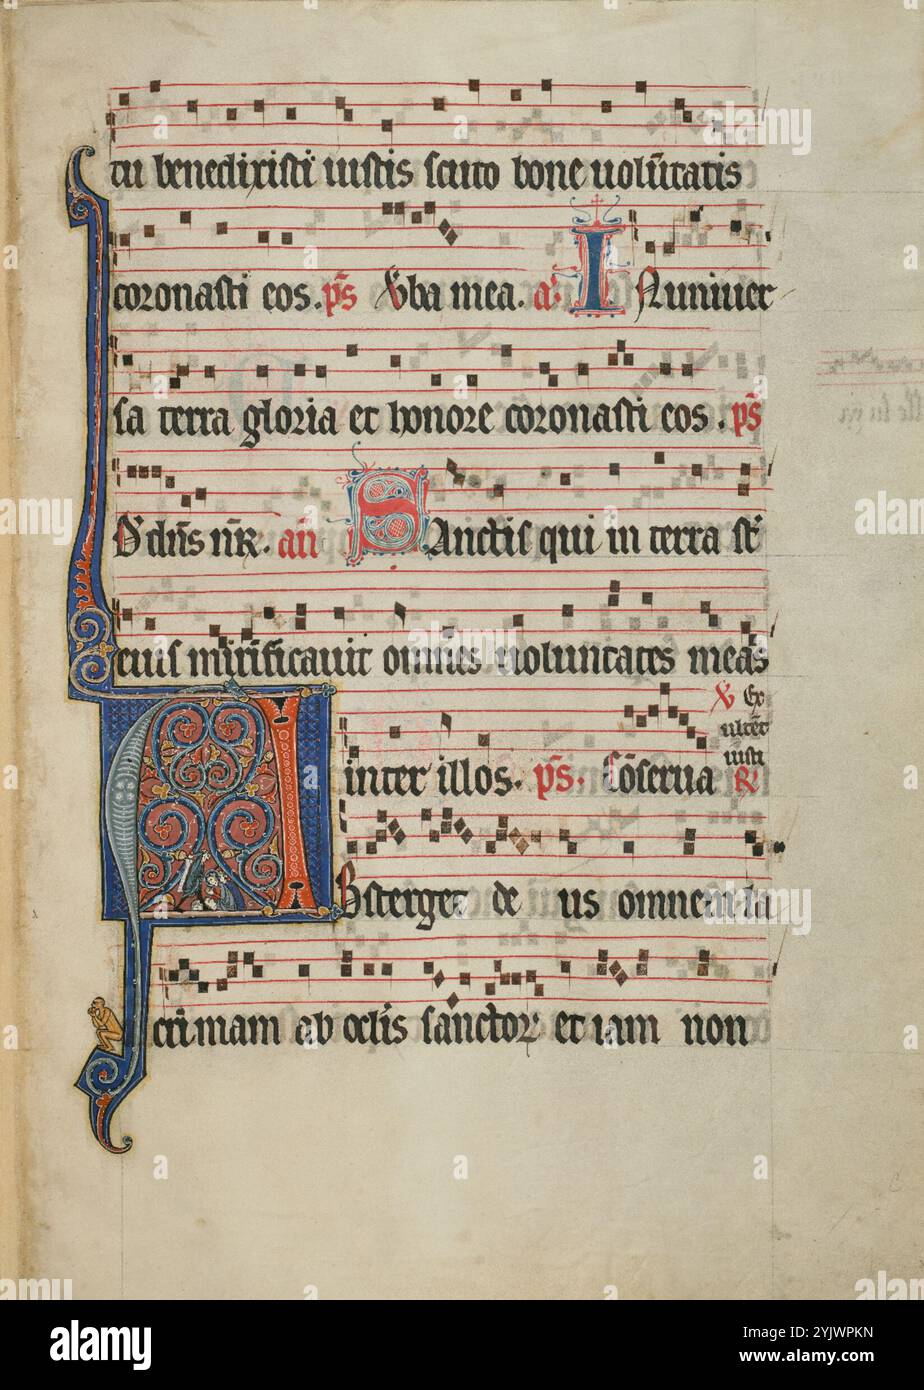 tu benedixisti iustis scuto bone uolūtatis
coronasti eos. ps̄ Vba mea. a. I Nuniuer
sa terra gloria et honore coronasti eos. ps̄
dn̄s nr̄. an̄ S Anctis qui in terra st̄
eius mirificauit omnes uoluntates meas
inter illos. ps̄. Cōserua
V Ex
ultēt
iusti
R
A Bsterget de us omnem la
crimam ab oclis sanctor et iam non
alamy
Image ID: 2YJWPKN
www.alamy.com